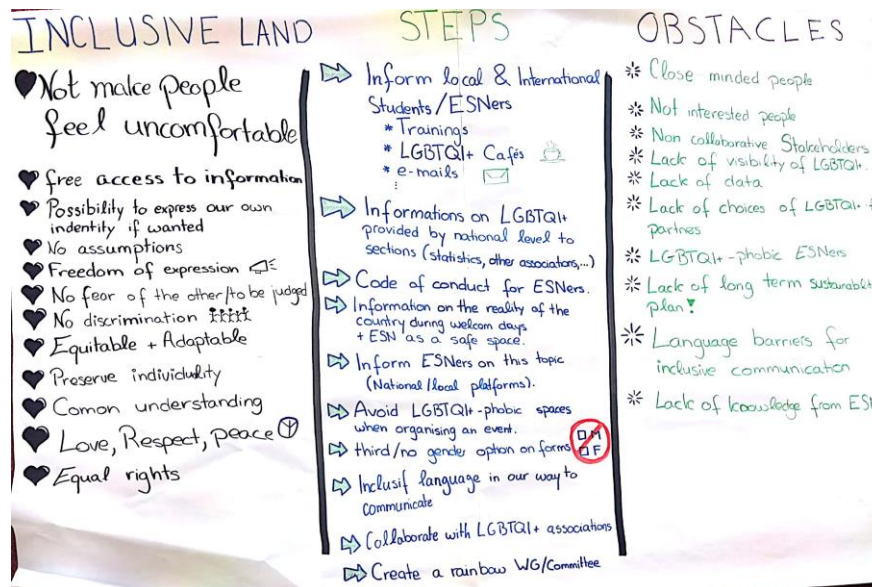 INCLUSIVE LAND
Not make people
feel uncomfortable
free access to information
Possibility to express our own
indentity if wanted
No assumptions
Freedom of expression
No fear of the other/to be judged
No discrimination
Equitable + Adaptable
Preserve individuality
Comon understanding
Love, Respect, peace
Equal rights
STEPS
Inform local & International
Students/ESNers
* Trainings
* LGBTQI+ Cafés
* e-mails
⋮
Informations on LGBTQI+
provided by national level to
sections (statistics, other associations,...)
Code of conduct for ESNers.
Information on the reality of the
country during welcom days
+ ESN as a safe space.
Inform ESNers on this topic
(National/local platforms).
Avoid LGBTQI+-phobic spaces
when organising an event.
third/no gender option on forms
M
F
Inclusif language in our way to
communicate
Collaborate with LGBTQI+ associations
Create a rainbow WG/Committee
OBSTACLES
Close minded people
Not interested people
Non collaborative Stakeholders
Lack of visibility of LGBTQI+
Lack of data
Lack of choices of LGBTQI+
partners
LGBTQI+-phobic ESNers
Lack of long term
plan!
Language barriers for
inclusive communication
Lack of knowledge from